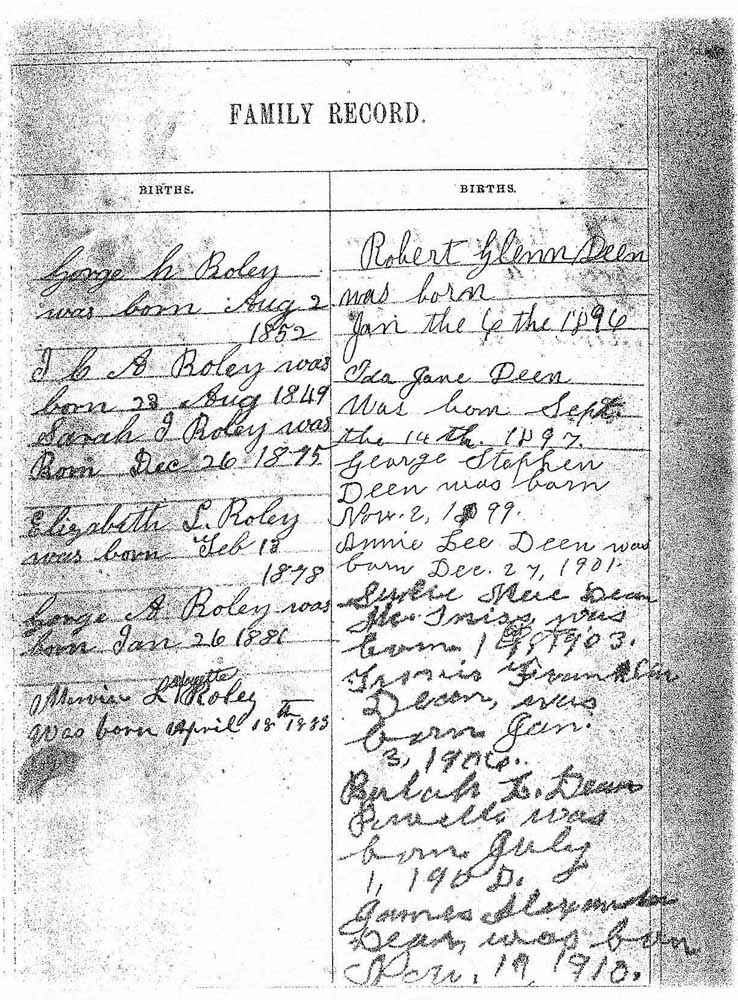 FAMILY RECORD.
BIRTHS.
George h Roley
was born Aug 2
1852
A Roley was
born 23 Aug 1849
Sarah J Roley was
Born Dec 26 1875
Elizabeth L. Roley
was born Feb 13
1878
George A. Roley was
born Jan 26 188
Lafayette
L Roley
Was born April 18th 1883
BIRTHS.
Robert Glenn Deen
was born
Jan the 6 the 1896
Ida Jane Deen
Was born Sept.
the 14 th. 1897.
George Stephen
Deen was born
Nov. 2, 1899.
Annie Lee Deen was
born Dec. 27, 1901.
Mae Dean
was
born 1903.
Franklin
Dean, was
born Jan.
3, 1906.
Bulah L. Dean
was
born July
1, 190
James Alexander
Dean, was born
19, 1910.